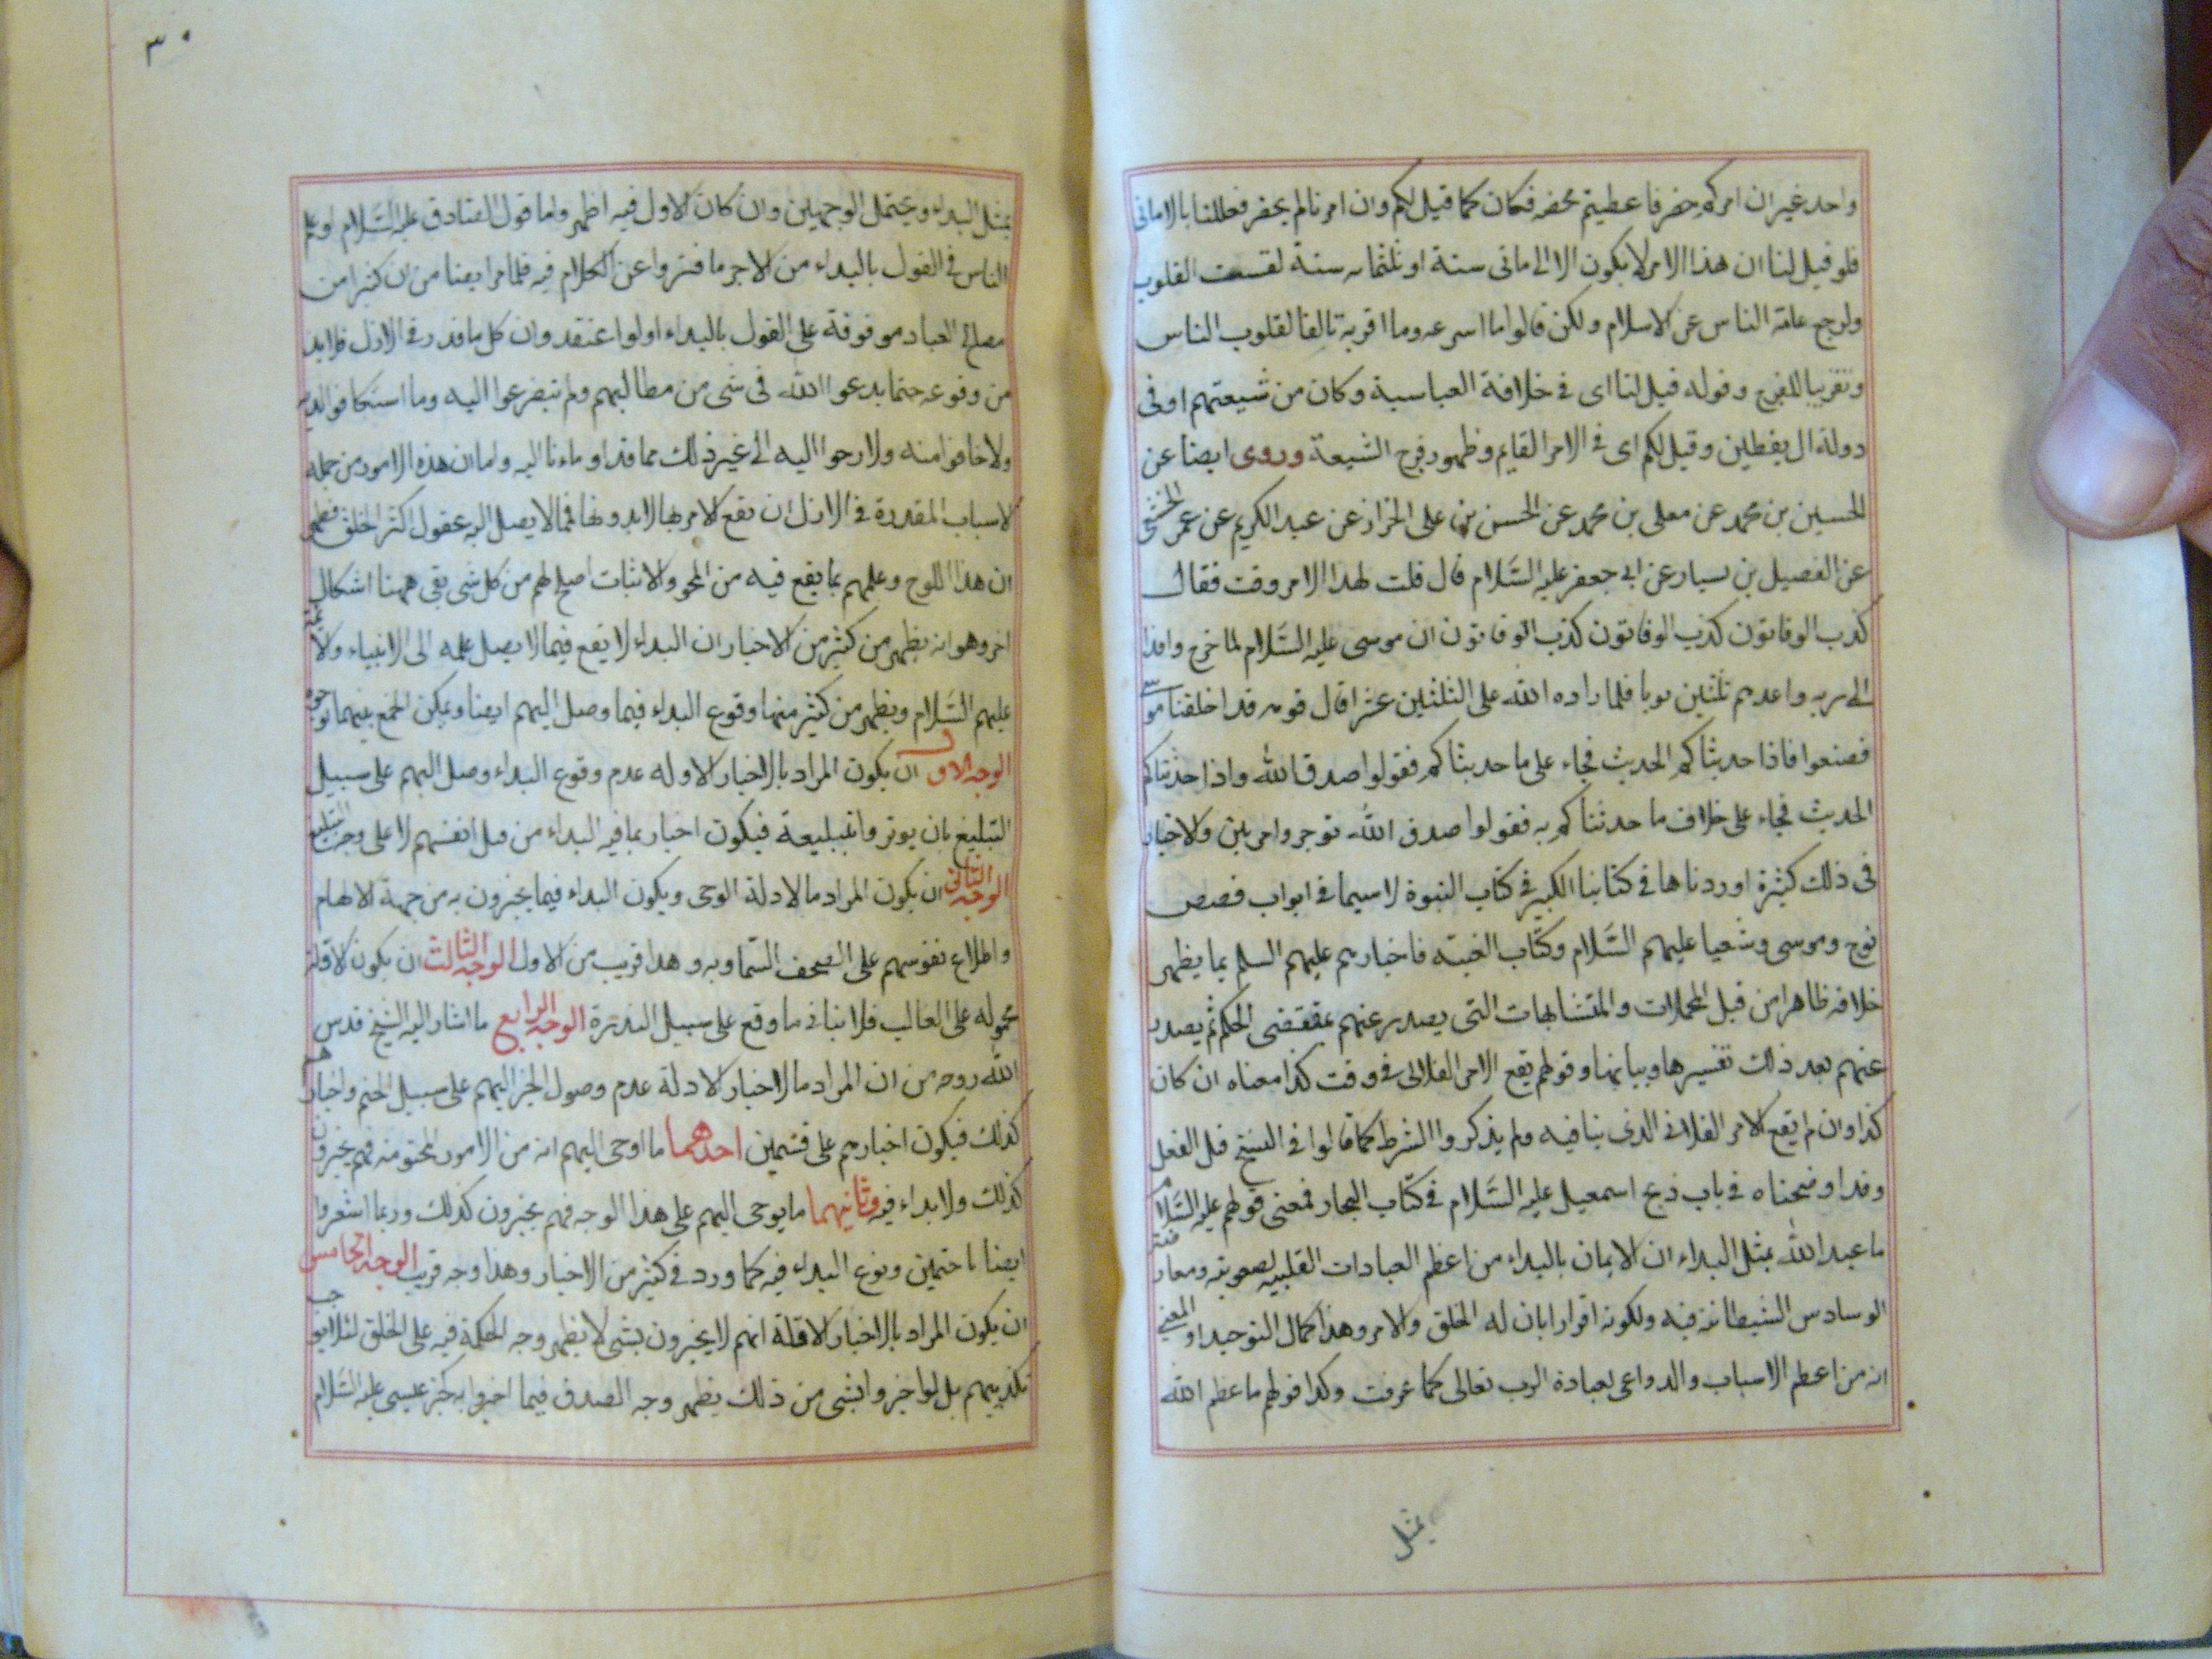 واحد غير ان امركم حضر فاعطيتم محضه فكان كما قيل لكم وان امرنا لم يحضر فعللنا بالامانى
فلو قيل لنا ان هذا الامر لا يكون الا الى مائى سنة او ثلثمائه سنة لقست القلوب
ولرجع عامة الناس عن الاسلام ولكن قالوا ما اسرعه وما اقربه تالفا لقلوب الناس
وتقريبا للفرج وقوله قيل لنا اى فى خلافة العباسية وكان من شيعتهم او فى
دولة ال يقطين وقيل لكم اى فى الامر القايم وظهور فرج الشيعة وروى ايضا عن
الحسين بن محمد عن معلى بن محمد عن الحسن بن على الخزاز عن عبد الكريم عن عمر الخثعمى
عن الفضيل بن يسار عن ابى جعفر عليه السَّلام قال قلت لهذا الامر وقت فقال
كذب الوقاتون كذب الوقاتون كذب الوقاتون ان موسى عليه السَّلام لما خرج وافدا
الى ربه واعدهم ثلثين يوما فلما زاده الله على الثلثين عشرا قال قومه قد اخلفنا موسى
فصنعوا فاذا حدثناكم الحديث فجاء على ما حدثناكم فقولوا صدق الله واذا حدثناكم
الحديث فجاء على خلاف ما حدثناكم به فقولوا صدق الله توجروا مرتين والاخبار
فى ذلك كثيرة اوردناها فى كتابنا الكبير فى كتاب النبوة لا سيما فى ابواب قصص
نوح وموسى وشعيا عليهم السَّلام وكتاب الغيبة فاخبارهم عليهم السلم بما يظهر
خلافه ظاهرا من قبل المجملات والمتشابهات التى يصدر عنهم بمقتضى الحكم ثم يصدر
عنهم بعد ذلك تفسيرها وبيانها وقولهم يقع الامر الفلانى فى وقت كذا معناه ان كان
كذا وان لم يقع الامر الفلانى الذى ينافيه ولم يذكروا الشرط كما قالوا فى النسخ قبل الفعل
وقد اوضحناه فى باب ذبح اسمعيل عليه السَّلام فى كتاب البحار فمعنى قولهم عليه السَّلام
ما عبد الله بمثل البداء ان الايمان بالبداء من اعظم العبادات القلبيه لصعوبته ومعارضة
الوسادس الشيطانية فيه ولكونه اقرارا بان له الخلق والامر وهذا كمال التوحيد او المعنى
انه من اعظم الاسباب والدواعى لعبادة الرب تعالى كما عرفت وكذا قولهم ما عظم الله
بمثل
٣٠
بمثل البداء ويحتمل الوجهين وان كان الاول فيه اظهر واما قول الصادق عليه السَّلام لو علم
الناس فى القول بالبداء من الاجر ما فتروا عن الكلام فيه فلما مر ايضا من ان كثيرا من
مصالح العباد موقوفة على القول بالبداء اولو اعتقد وان كل ما قدر فى الازل فلابد
من وقوعه حتما بدعوا الله فى شى من مطالبهم ولم يتضرعوا اليه وما استكافوا لديه
ولا خافوا منه ولا رجوا اليه الى غير ذلك مما قد اومانا اليه واما ان هذه الامور من جملة
الاسباب المقدرة فى الازل ان يقع الامر بها لا بدونها فمما لا يصل اليه عقول اكثر الخلق فظهر
ان هذا اللوح وعلمهم بما يقع فيه من المحو والاثبات اصلح لهم من كل شى بقى ههنا اشكال
اخر وهو انه يظهر من كثير من الاخبار ان البداء لا يقع فيما لا يصل علمه الى الانبياء والائمة
عليهم السَّلام ويظهر من كثير منها وقوع البداء فيما وصل اليهم ايضا ويمكن الجمع بينهما بوجوه
الوجه الاول ان يكون المراد بالاخبار الاوله عدم وقوع البداء وصل اليهم على سبيل
التبليغ بان يوتروا بتبليغه فيكون اخبار بما فيه البداء من قبل انفسهم لا على وجه التبليغ
الوجه الثانى ان يكون المراد مالادلة الوحى ويكون البداء فيما يخبرون به من جهة الالهام
واطلاع نفوسهم على الصحف السَّماويه وهذا قريب من الاول الوجه الثالث ان يكون الاوله
محموله على الغالب فلا ينافى ما وقع على سبيل الندرة الوجه الرابع ما اشار اليه الشيخ قدس
الله روحه من ان المراد مالاخبار الادلة عدم وصول الخبر اليهم على سبيل الحتم واخبارهم
كذلك فيكون اخبارهم على قسمين احدهما ما اوحى اليهم انه من الامور المحتومه فهم يخبرون
كذلك ولا بداء فيه وثانيهما ما يوحى اليهم على هذا الوجه فهم يخبرون كذلك وربما اشعروا
ايضا باحتمين وقوع البداء فيه كما ورد فى كثير من الاخبار وهذا وجه قريب الوجه الخامس
ان يكون المراد بالاخبار الاولة انهم لا يخبرون بشى لا يظهر وجه الحكمة فيه على الخلق لئلا يوجب
تكذيبهم بل لو اخبروا بشى من ذلك يظهر وجه الصدق فيما اخبروا به كخبر عيسى عليه السَّلام